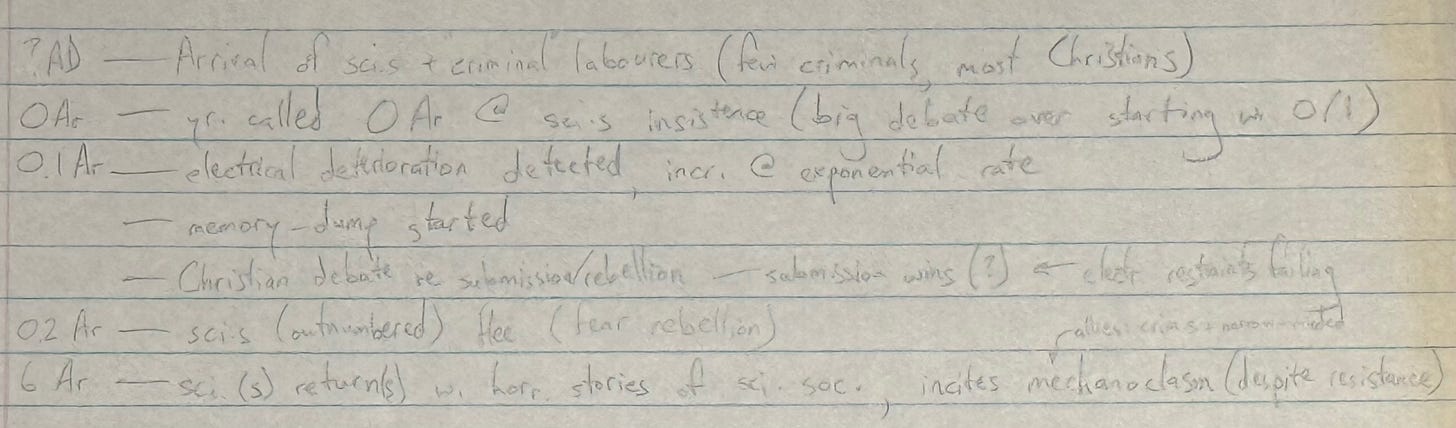 ?AD — Arrival of sci.s + "criminal" labourers (few criminals, most Christians)
0 Ar — yr. called 0 Ar @ sci.s insistence (big debate over starting w. 0/1)
0.1 Ar — electrical deterioration detected, incr. @ exponential rate
— memory-dump started
— Christian debate re submission/rebellion — submission wins (?) ← electr restraints failing
0.2 Ar — sci.s (outnumbered) flee (fear rebellion)
rallies: crims + narrow-minded
6 Ar — sci.(s) return(s) w. horr. stories of sci. soc., incites mechanoclasm (despite resistance)